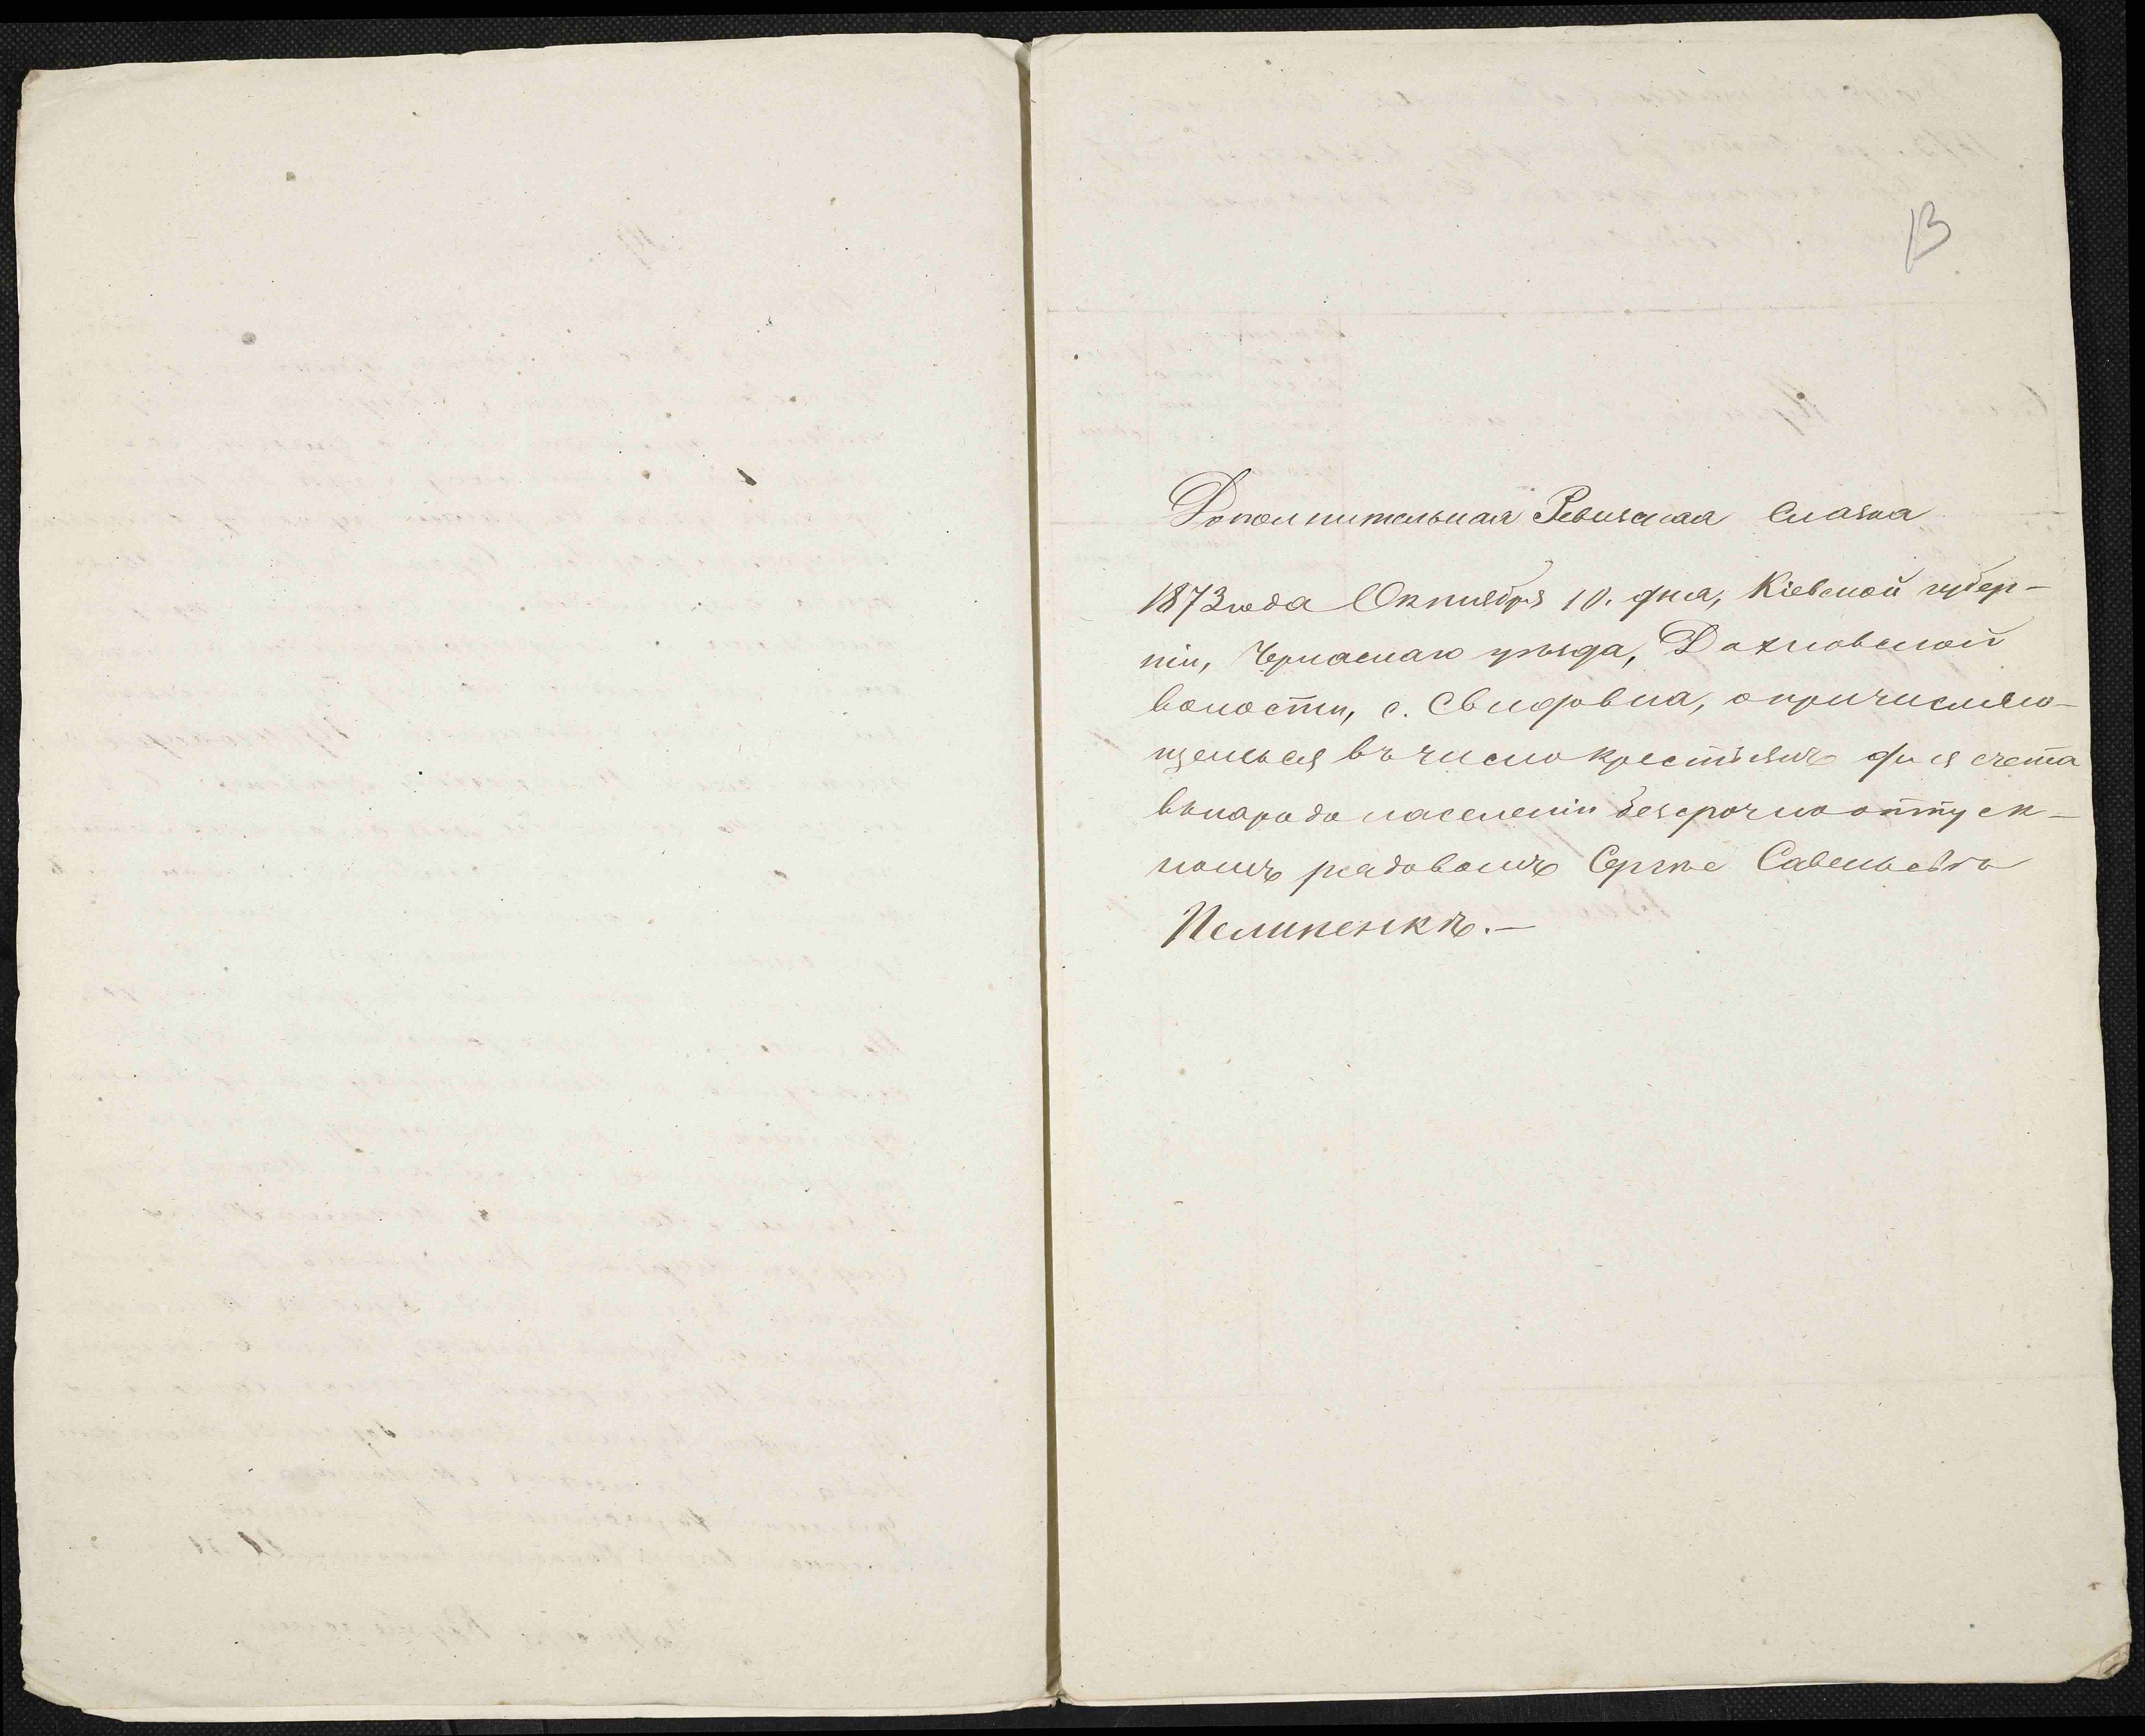 13
Дополнительная Ревизская Сказка
1873 года Октября 10. дня, Кіевской губер-
ніи, Черкаскаго уѣзда, Дахновской
волости, с. Свидовка, о причисляю-
щемься въ число крестьянъ для счета
въ народонаселеніи безсрочноотпуск-
номъ рядовомъ Сергѣе Савельевѣ
Пелипенкѣ.—